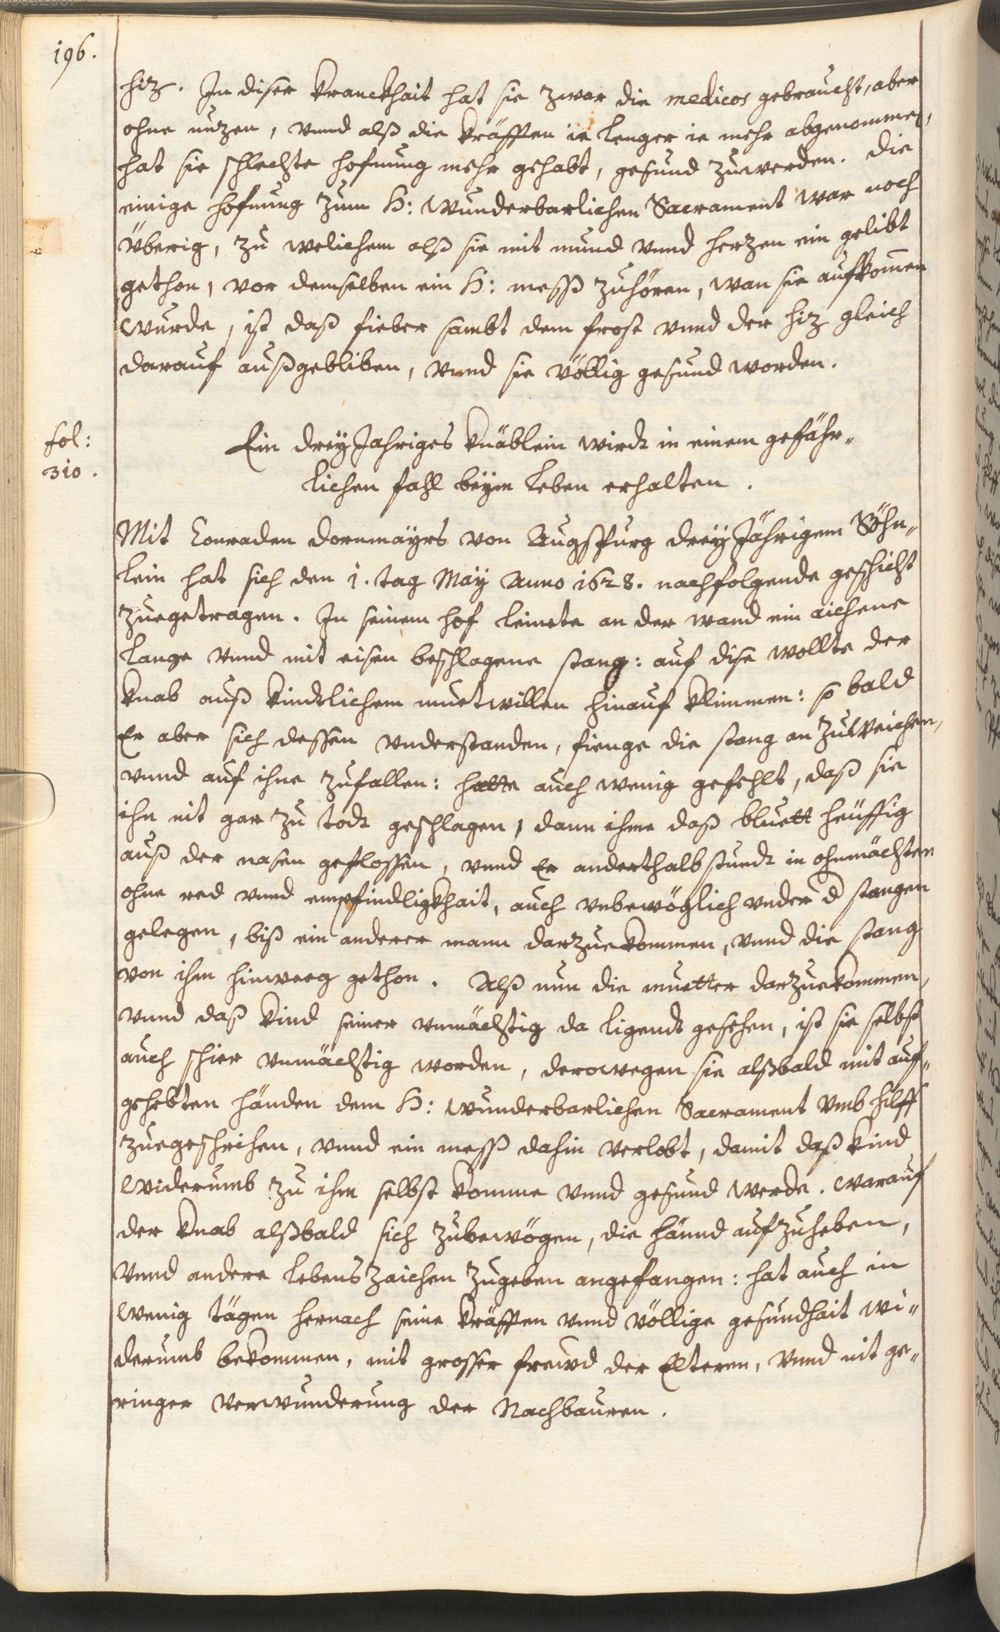 196.
hiz. In diser kranckhait hat sie zwar die medicos gebraucht, aber
ohne nuzen, vnnd alß die kräfften ie lenger ie mehr abgenommen,
hat sie schlechte hofnung mehr gehabt, gesund zuwerden. die
einige hofnung zum H: wunderbarlichen Sacrament war noch
überig, zu welichem alß sie mit mund vnnd herzen ein gelibt
gethon, vor demselben ein H: mess zuhören, wan sie aufkomen
wurde, ist daß fieber sambt dem frost vnnd der hiz gleich
darauf außgebliben, vnnd sie völlig gesund worden.
fol:
310.
Ein dreyJahriges knäblein wirdt in einem gefähr„
lichen fahl beÿm leben erhalten.
Mit Conraden dornmaÿrs von Augspurg dreyJährigem Söhn„
lein hat sich den 1. tag May Anno 1628. nachfolgende geschicht
zuegetragen. In seinem hof leinete an der wand ein aichene
lange vnnd mit eisen beschlagene stang: auf dise wollte der
knab auß kindtlichem muetwillen hinauf klimmen: so bald
Er aber sich dessen vnderstanden, fienge die stang an zuweichen,
vnnd auf ihne zufallen: hatte auch wenig gefehlt, daß sie
ihn nit gar zu todt geschlagen, dann ihme daß bluett heüffig
auß der nasen geflossen, vnnd Er anderthalb stundt in ohnmächten
ohne red vnnd empfindligkhait, auch vnbewöglich vnder d stangen
gelegen, biß ein anderer mann darzuekommen, vnnd die stang
von ihm hinweeg gethon. Alß nun die muetter darzuekommen,
vnnd daß kind seiner vnmächtig da ligendt gesehen, ist sie selbst
auch schier vnmächtig worden, derowegen sie alßbald mit auf„
gehebten händen dem H: wunderbarlichen Sacrament vmb hilff
zuegeschrihen, vnnd ein mess dahin verlobt, damit daß kind
widerumb zu ihm selbst komme vnnd gesund werde. warauf
der knab alßbald sich zubewögen, die hännd aufzuheben,
vnnd andere lebens zaichen zugeben angefangen: hat auch in
wenig tägen hernach seine kräfften vnnd völlige gesundhait wi„
derumb bekommen, mit grosser frewd der Elteren, vnnd nit ge„
ringer verwunderung der Nachbauren.